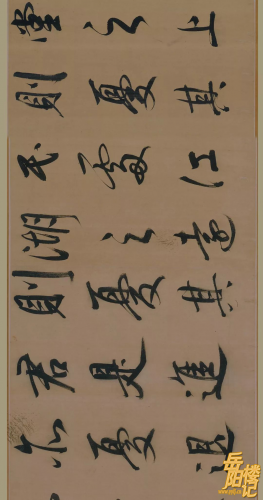 堂之上
則憂其
民處江
湖之遠
則憂其
君是進
亦憂退
岳阳楼记